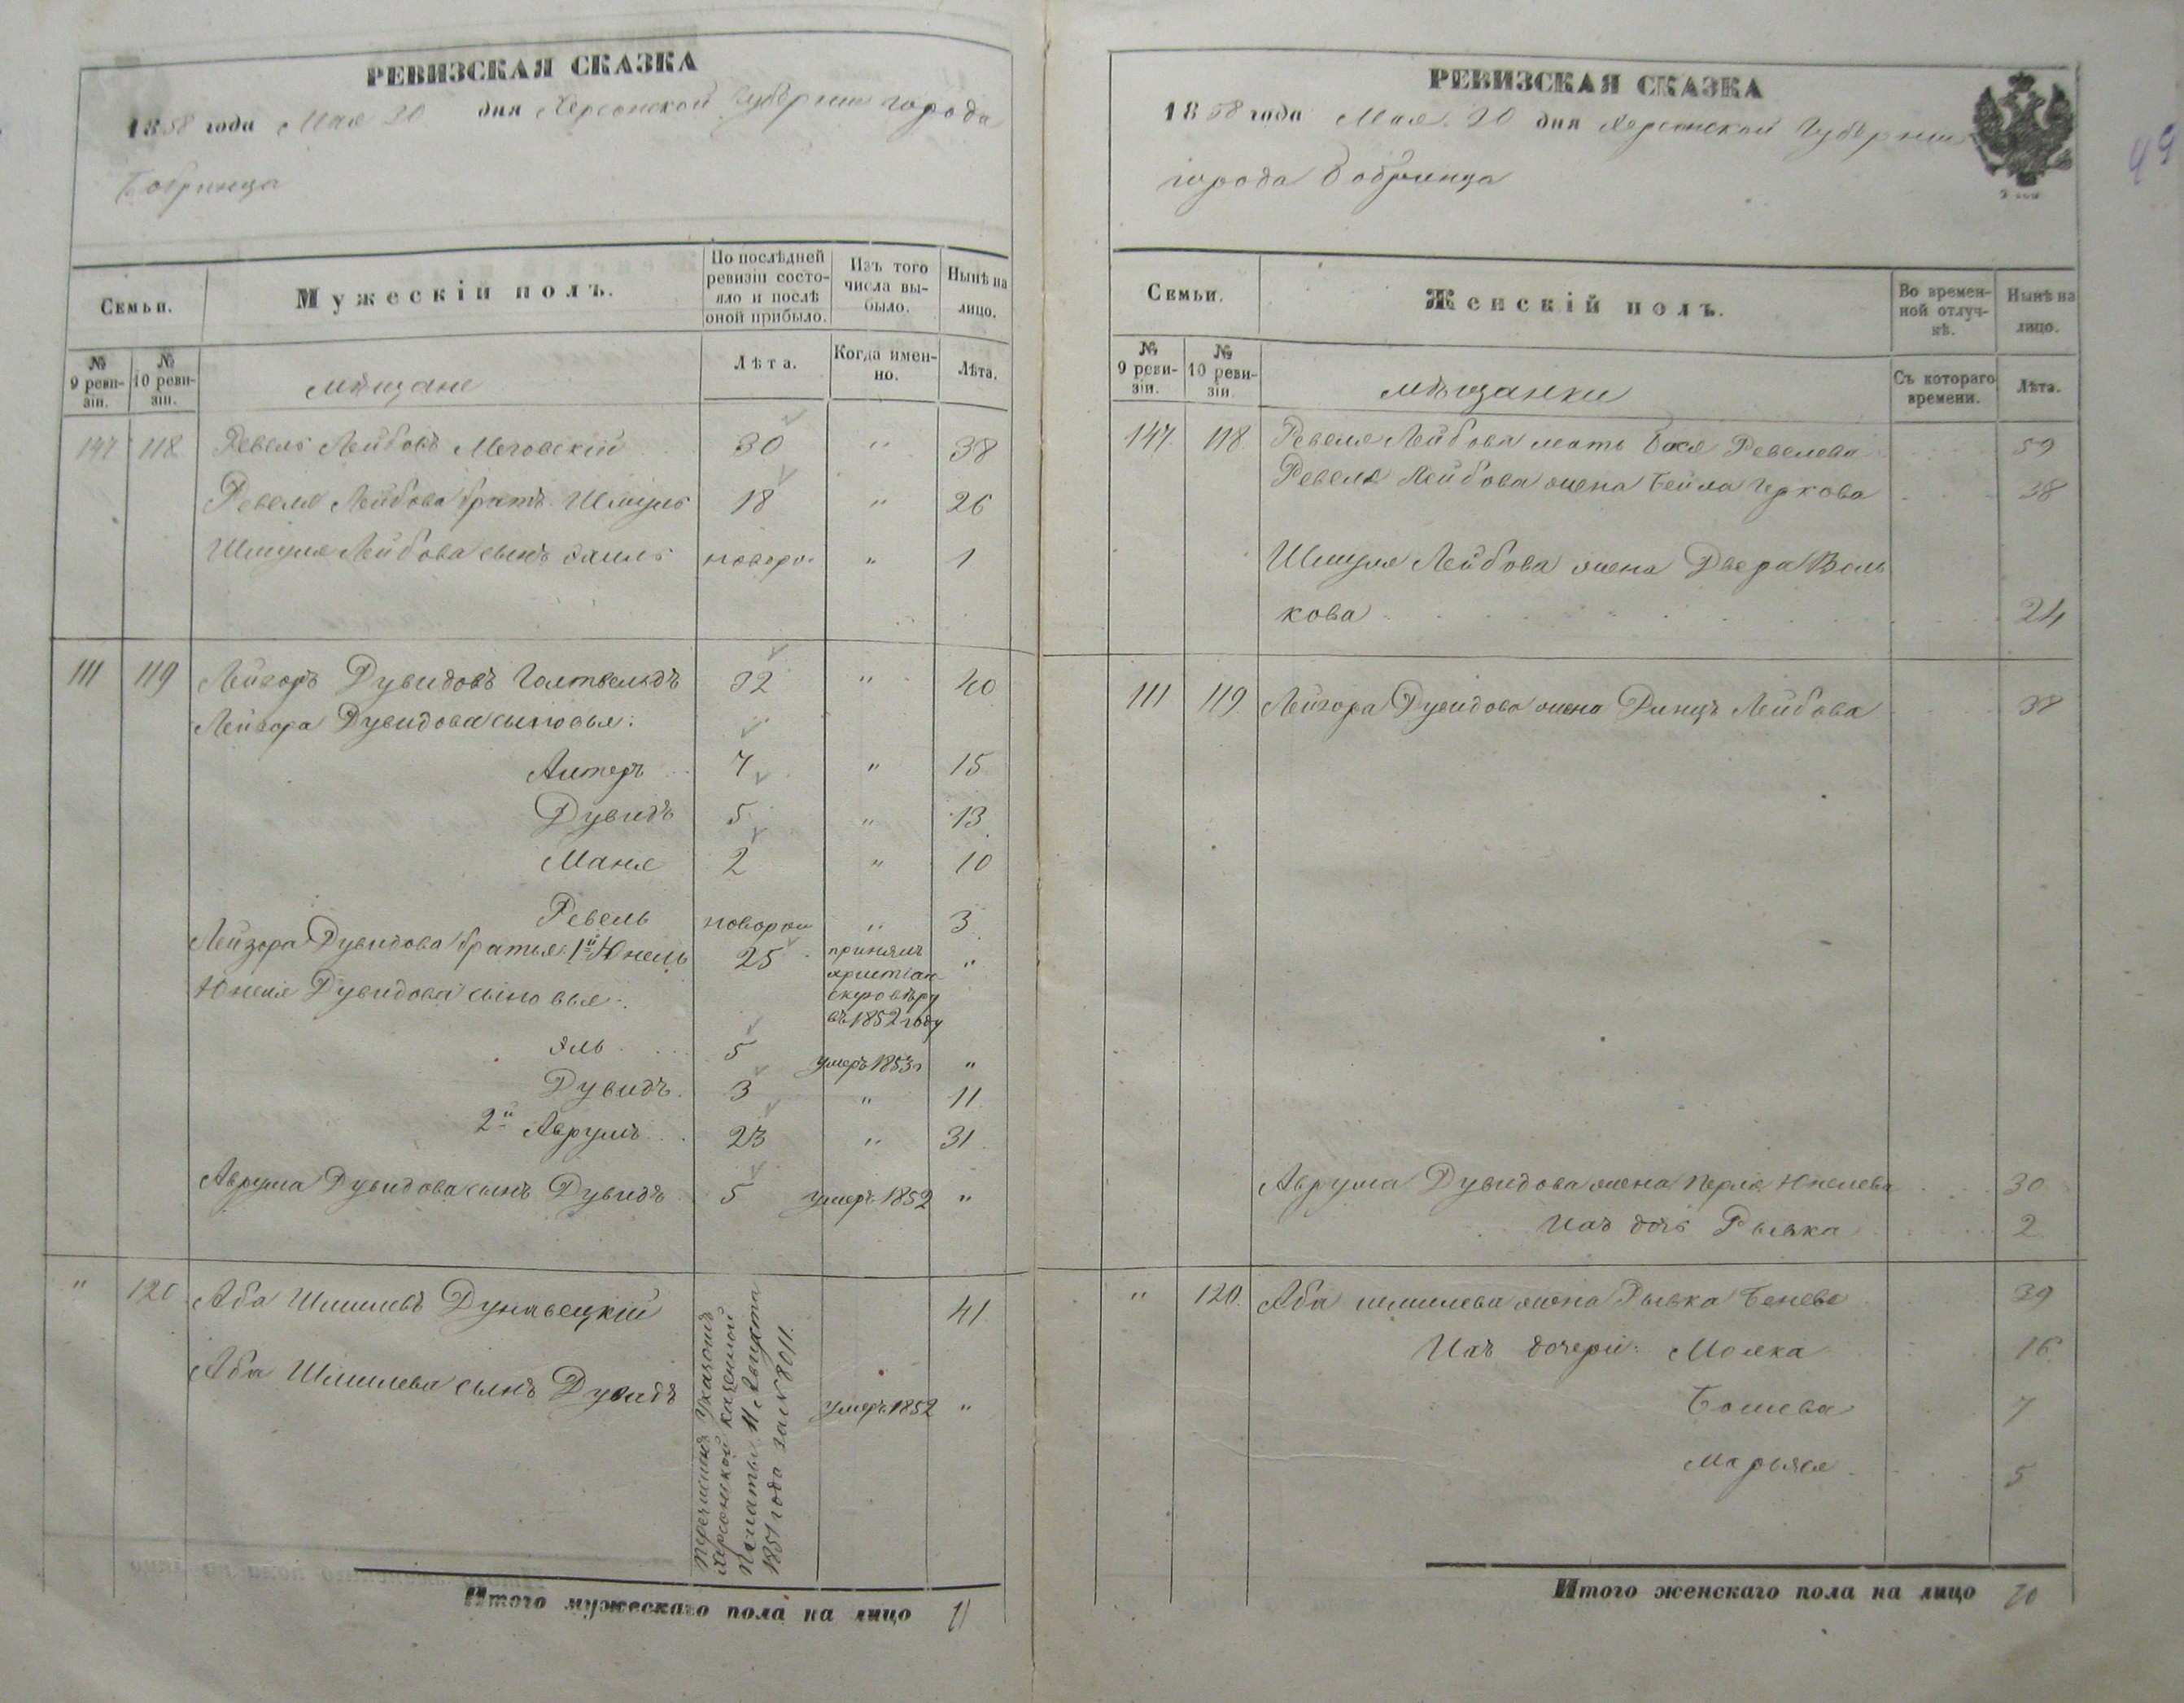 РЕВИЗСКАЯ СКАЗКА
1858 года Мая 20 дня Херсонской Губерніи города
Бобринца
Семьи.
Мужескій полъ.
По послѣдней ревизіи состояло и послѣ оной прибыло.
Изъ того числа выбыло.
Нынѣ на лицо.
№ 9 ревизіи.
№ 10 ревизіи.
мѣщане
Лѣта.
Когда именно.
Лѣта.
147 118 Ревель Лейбовъ 30 " 38
Ревеля Лейбова братъ Шмуль 18 " 26
Шмуля Лейбова сынъ новоро. " 1
111 119 Лейзоръ Дувидовъ 32 " 40
Лейзора Дувидова сыновья:
Алтеръ 7 " 15
Дувидъ 5 " 13
Маня 2 " 10
Ревель новорож " 3
Лейзора Дувидова братья: 1й Юнель 25 принялъ "
христіан-
скую вѣру
въ 1852 году
Юнеля Дувидова сыновья:
Эль 5 умеръ 1853г "
Дувидъ 3 " 11
2й Аврумъ 23 " 31
Аврума Дувидова сынъ Дувидъ 5 умеръ 1852 "
" 120 Аба Шмилевъ Дунаевецкій 41
Аба Шмилева сынъ Дувидъ умеръ 1852 "
перечисленъ указомъ
Херсонской казенной
Палаты 11 Августа
1851 года за № 8011.
Итого мужескаго пола на лицо 11
РЕВИЗСКАЯ СКАЗКА
1858 года Мая 20 дня Херсонской Губерніи
города Бобринца
49
Семьи.
Женскій полъ.
Во временной отлучкѣ.
Нынѣ на лицо.
№ 9 ревизіи.
№ 10 ревизіи.
мѣщанки
Съ котораго времени.
Лѣта.
147. 118. Ревеля Лейбова мать Бася Ревелева 59
Ревеля Лейбова жена Бейла 38
Шмуля Лейбова жена Двера Воль
кова 24
111 119. Лейзора Дувидова жена Лейбова 38
Аврума Дувидова жена Перля Юнелева 30
Ихъ дочь Рывка 2
" 120. Аба шмилева жена Рывка 39
Ихъ дочери: Малка 16
Башева 7
Марьяся 5
Итого женскаго пола на лицо 10